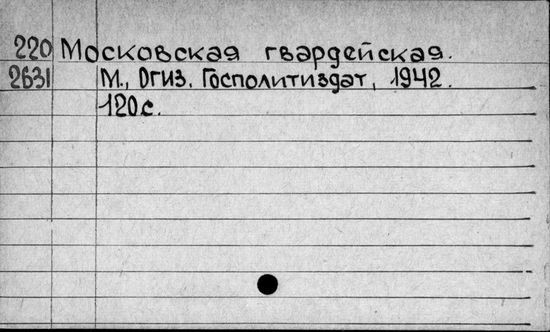 220 Московская гвардейская.
2631 М., Огиз. Госполитиздат, 1942.
120 с.